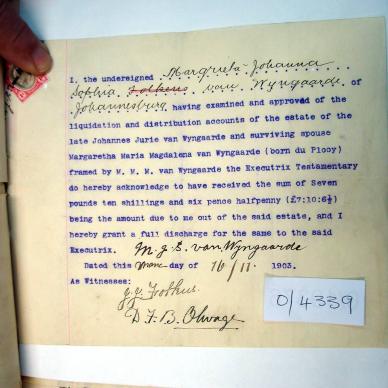 I, the undersigned Margrieta Johanna
Sophia Folkers van Wyngaarde of
Johannesburg having examined and approved of the
liquidation and distribution accounts of the estate of the
late Johannes Jurie van Wyngaarde and surviving spouse
Margaretha Maria Magdalena van Wyngaarde (born du Plooy)
framed by M. M. M. van Wyngaarde the Executrix Testamentary
do hereby acknowledge to have received the sum of Seven
pounds ten shillings and six pence halfpenny (£7:10:6½)
being the amount due to me out of the said estate, and I
hereby grant a full discharge for the same to the said
Executrix. M. J. S. van Wyngaarde
Dated this day of 16/11 1903.
As Witnesses:
D. F. B. Olwage
0/4339